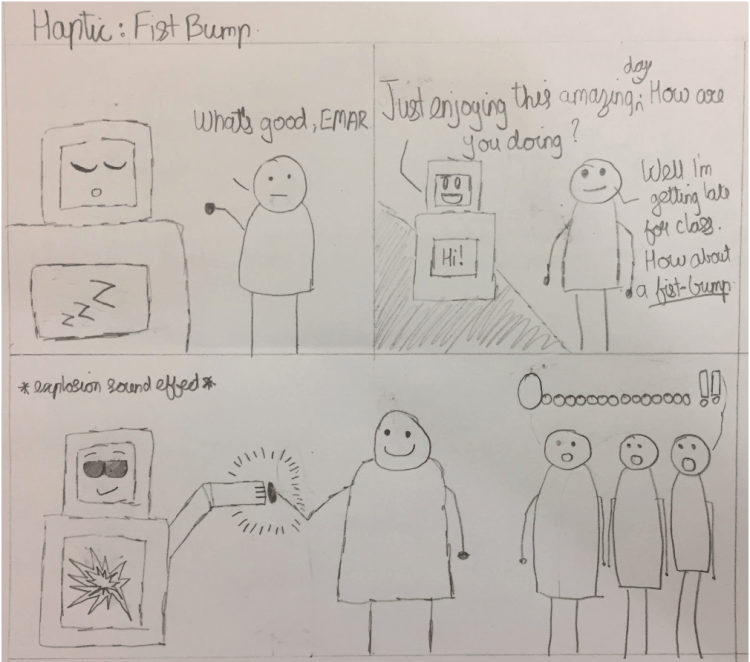 Haptic: Fist Bump.
What's good, EMAR
zzz
day
Just enjoying this amazing. How are
you doing?
Hi!
Well I'm
getting late
for class.
How about
a fist-bump
*explosion sound effect*
Oooooooooooooo !!